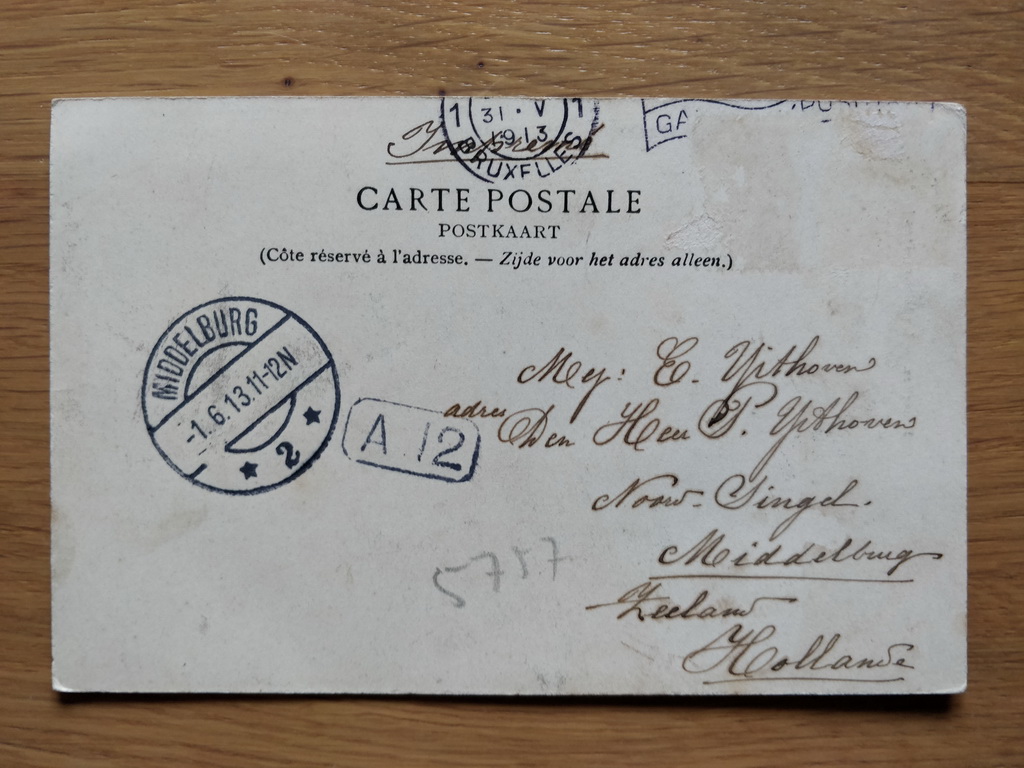 1 31 · V 1
1913
BRUXELLES
GA
Imprimé
CARTE POSTALE
POSTKAART
(Côte réservé à l'adresse. — Zijde voor het adres alleen.)
MIDDELBURG
-1.6.13.11-12N
★ 2 ★
A 12
Mej: E. Uijthoven
adres
Den Heer P. Uijthoven
Noord-Singel.
Middelburg
Zeeland
Hollande
5757